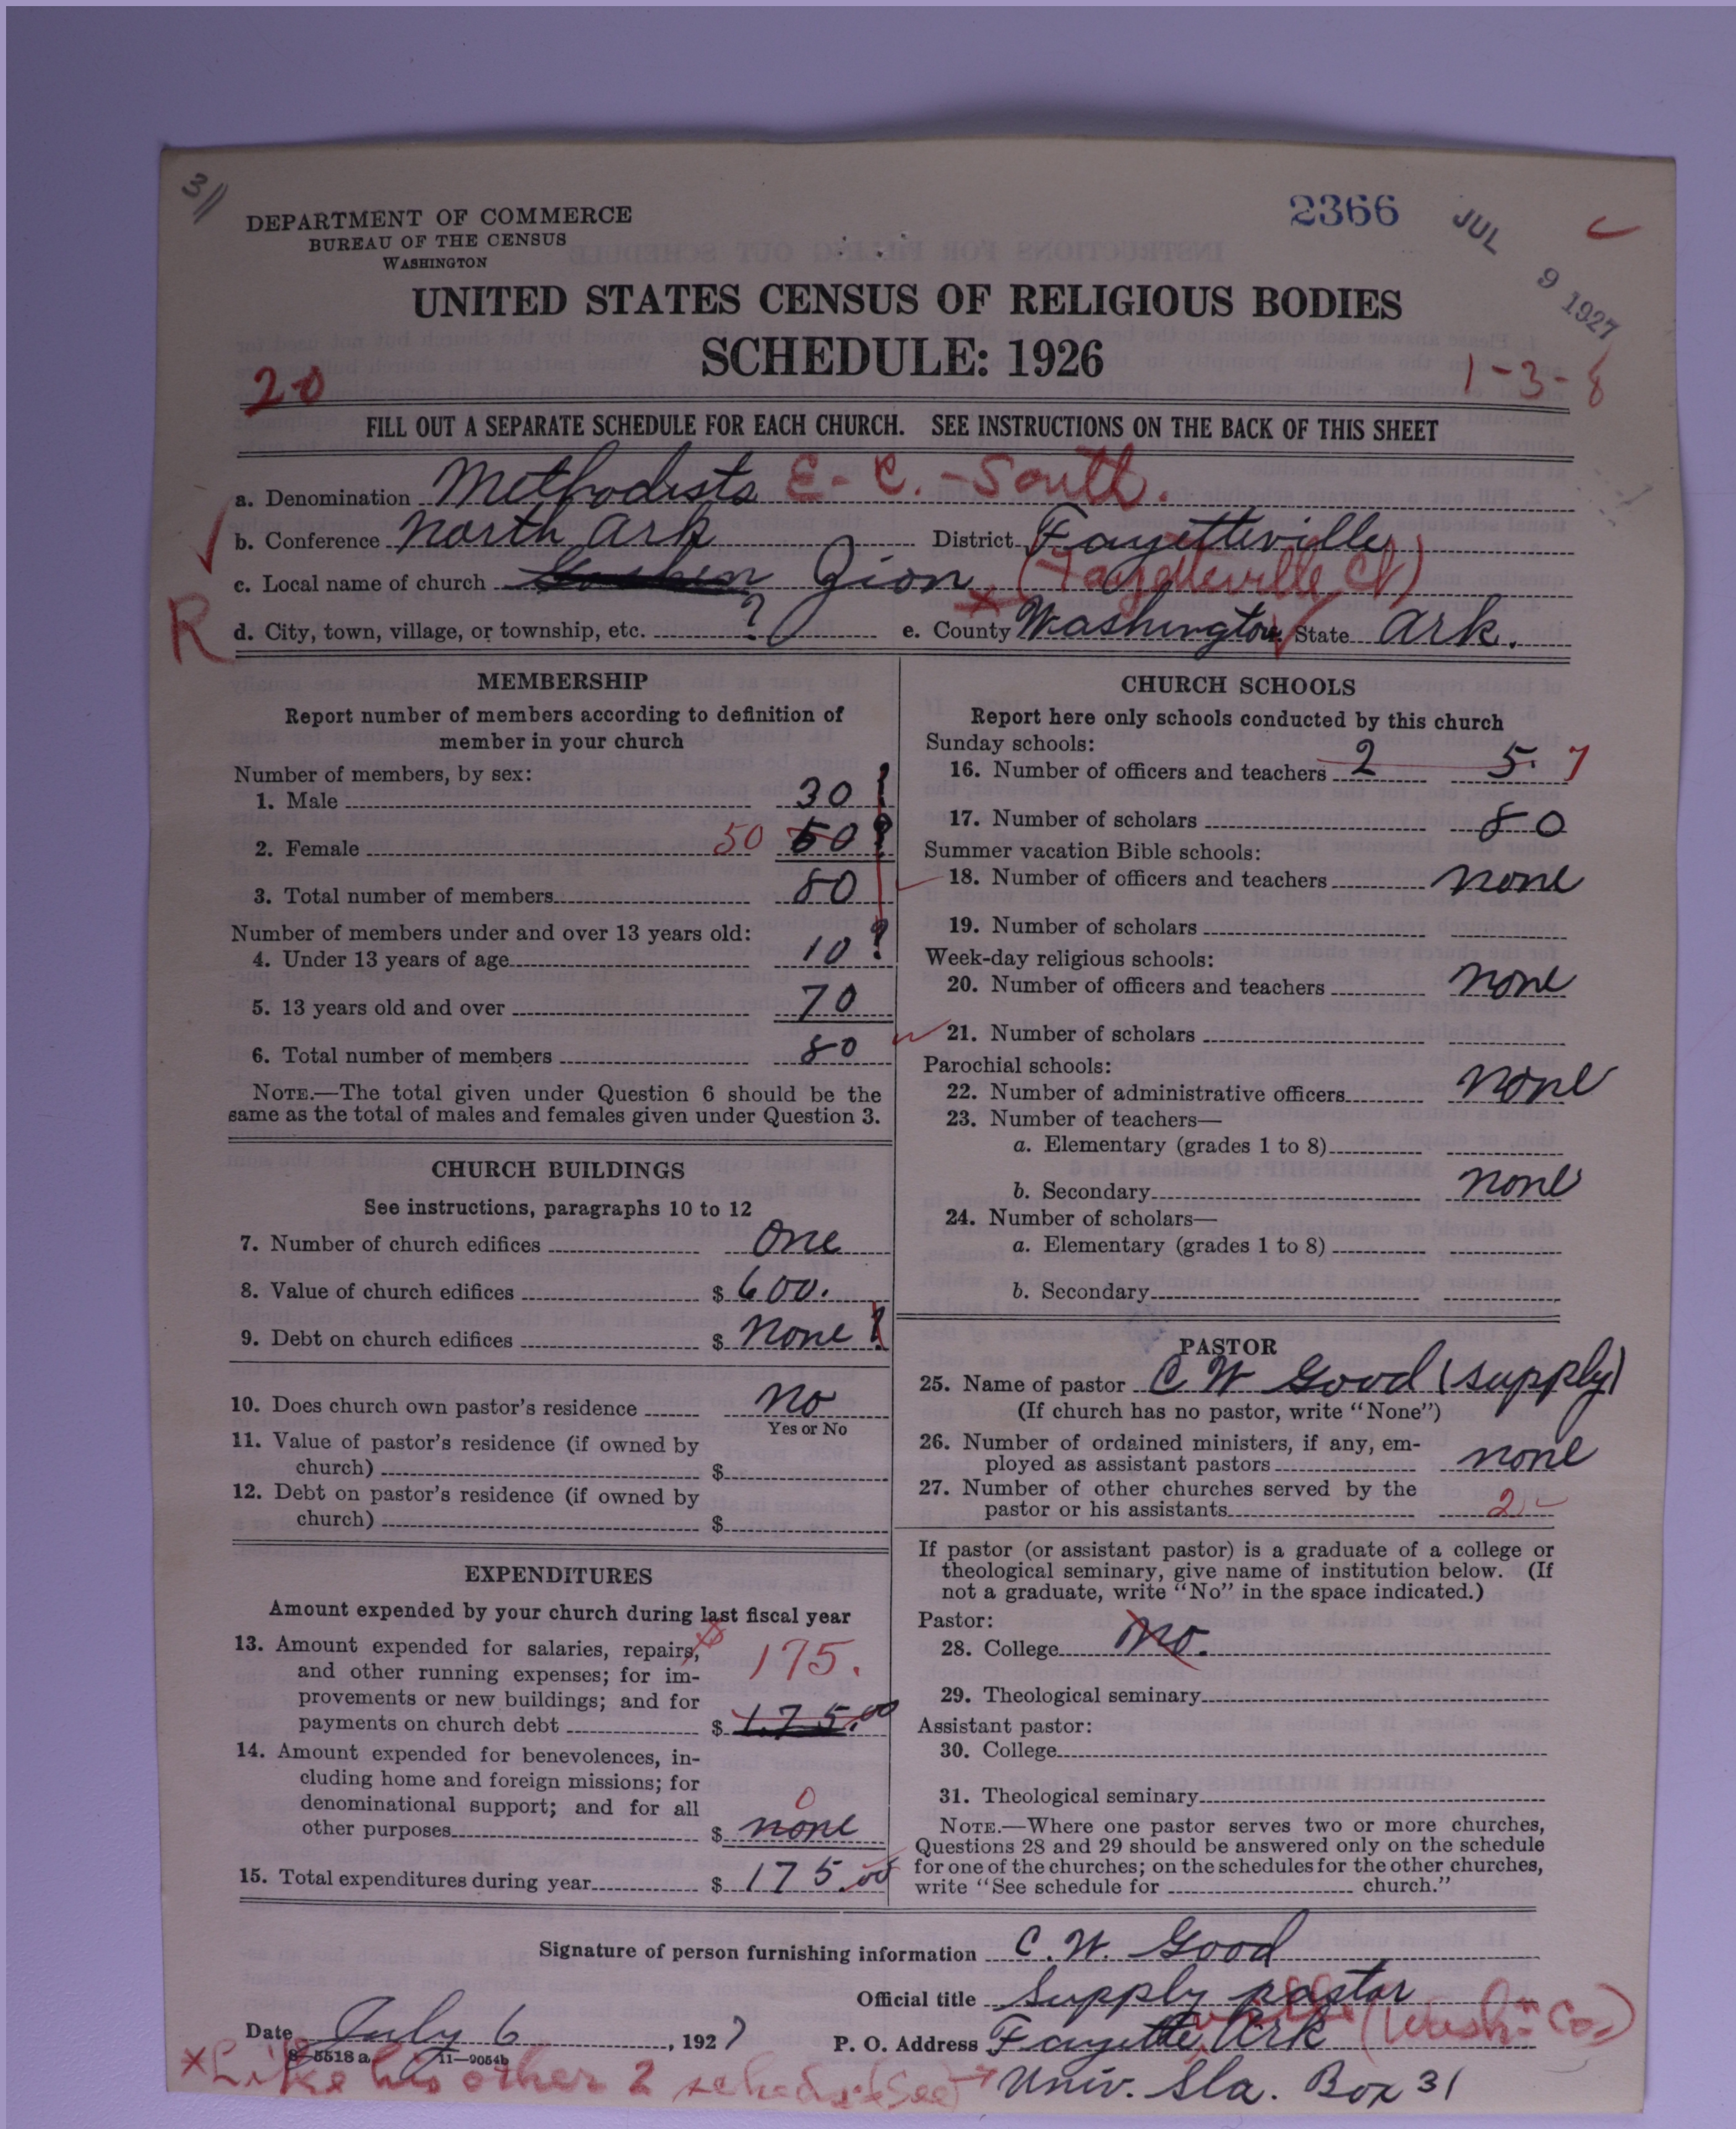 31
2366
JUL 9 1927
DEPARTMENT OF COMMERCE
BUREAU OF THE CENSUS
WASHINGTON
UNITED STATES CENSUS OF RELIGIOUS BODIES
SCHEDULE: 1926
20
1-3-8
FILL OUT A SEPARATE SCHEDULE FOR EACH CHURCH. SEE INSTRUCTIONS ON THE BACK OF THIS SHEET
a. Denomination Methodists E. C. - South.
b. Conference North Ark District Fayetteville
c. Local name of church Goshen Zion (Fayetteville Ct)
R
d. City, town, village, or township, etc. ? e. County Washington State Ark.
MEMBERSHIP
Report number of members according to definition of
member in your church
Number of members, by sex:
1. Male 30 ?
2. Female 50 50 ?
3. Total number of members 80
Number of members under and over 13 years old:
4. Under 13 years of age 10 ?
5. 13 years old and over 70
6. Total number of members 80
NOTE.—The total given under Question 6 should be the
same as the total of males and females given under Question 3.
CHURCH BUILDINGS
See instructions, paragraphs 10 to 12
7. Number of church edifices One
8. Value of church edifices $ 600.
9. Debt on church edifices $ None ?
10. Does church own pastor's residence No
Yes or No
11. Value of pastor's residence (if owned by
church) $
12. Debt on pastor's residence (if owned by
church) $
EXPENDITURES
Amount expended by your church during last fiscal year
13. Amount expended for salaries, repairs, $ 175.
and other running expenses; for im-
provements or new buildings; and for
payments on church debt $ 175.00
14. Amount expended for benevolences, in-
cluding home and foreign missions; for
denominational support; and for all 0
other purposes $ none
15. Total expenditures during year $ 175.00
CHURCH SCHOOLS
Report here only schools conducted by this church
Sunday schools:
16. Number of officers and teachers 2 5. 7
17. Number of scholars 80
Summer vacation Bible schools:
18. Number of officers and teachers none
19. Number of scholars
Week-day religious schools:
20. Number of officers and teachers none
21. Number of scholars
Parochial schools:
22. Number of administrative officers none
23. Number of teachers—
a. Elementary (grades 1 to 8)
b. Secondary none
24. Number of scholars—
a. Elementary (grades 1 to 8)
b. Secondary
PASTOR
25. Name of pastor C W Good (supply)
(If church has no pastor, write "None")
26. Number of ordained ministers, if any, em-
ployed as assistant pastors none
27. Number of other churches served by the
pastor or his assistants 2
If pastor (or assistant pastor) is a graduate of a college or
theological seminary, give name of institution below. (If
not a graduate, write "No" in the space indicated.)
Pastor:
28. College No.
29. Theological seminary
Assistant pastor:
30. College
31. Theological seminary
NOTE.—Where one pastor serves two or more churches,
Questions 28 and 29 should be answered only on the schedule
for one of the churches; on the schedules for the other churches,
write "See schedule for church."
Signature of person furnishing information C. W. Good
Official title Supply pastor
Date July 6, 1927 P. O. Address Fayetteville, Ark (Wash. Co.)
8-5518 a 11-9054b
* Like his other 2 scheds. (See) → Univ. Sta. Box 31